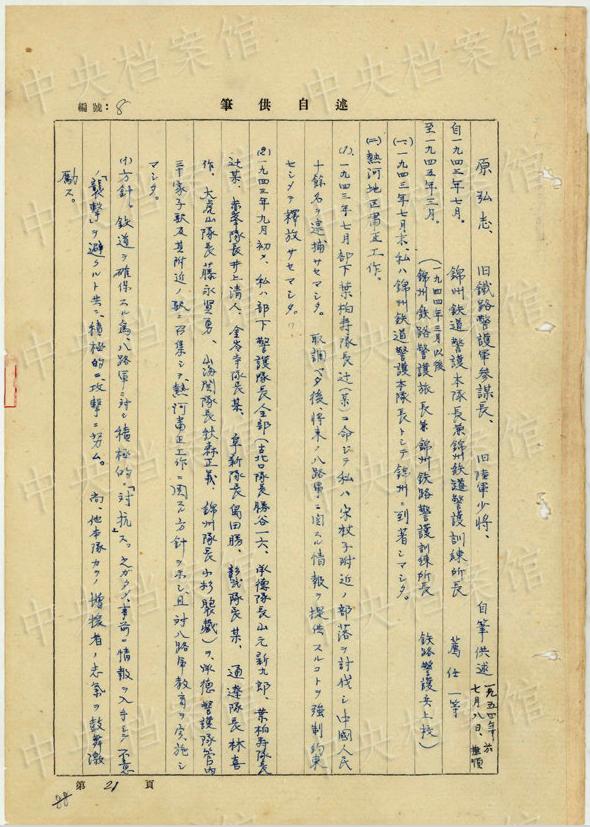 中央档案馆
編號:8
筆供自述
原弘志、 旧鐵路警護軍参謀長、 旧陸軍少將、 自筆供述 一九五四年 七月八日、於撫順
自一九四三年七月。 錦州鉄道警護本隊長兼錦州鉄道警護訓練所長 薦任一等
至一九四五年三月。 (一九四四年三月以後 錦州鉄路警護旅長兼錦州鉄路警護訓練所長 鉄路警護兵上校)
(一)一九四三年七月末、私ハ錦州鉄道警護本隊長トシテ錦州ニ到著シマシタ。
(二)熱河地区粛正工作。
(1)、一九四三年七月部下葉柏寿隊長辻(某)ニ命ジテ私ハ宋杖子附近ノ部落ヲ討伐シ中國人民
十餘名ヲ逮捕サセマシタ。 取調ベタ後將来、八路軍ニ関スル情報ヲ提供スルコトヲ強制約束
センメテ釋放サセマシタ。
(2)一九四三年九月初メ、私ハ部下警護隊長全部(古北口隊長勝谷一六、承德隊長山元新九郎、葉柏寿隊長
辻某、 隊長井上清人、金嶺寺隊長某、 阜新隊長島田勝、彰武隊長某、 通遼隊長林喜
作、大虎山隊長藤永賢勇、山海関隊長秋森正義、錦州隊長小杉 藏)ヲ、承德警護隊管内
三十家子駅及其附近ノ駅ニ召集シテ、熱河粛正工作ニ関スル方針ヲ示シ、且対八路軍教育ヲ実施シ
マシタ。
(イ)方針。鉄道ヲ確保スル為、八路軍ニ対シ積極的ニ「対抗」ス。之ガタメ事前ニ情報ヲ入手シテ不意
「襲撃」ヲ避クルト共ニ、積極的ニ攻撃ニ努ム。 尚、他本隊カラノ增援者ノ志気ヲ鼓舞激
勵ス。
第 21 頁